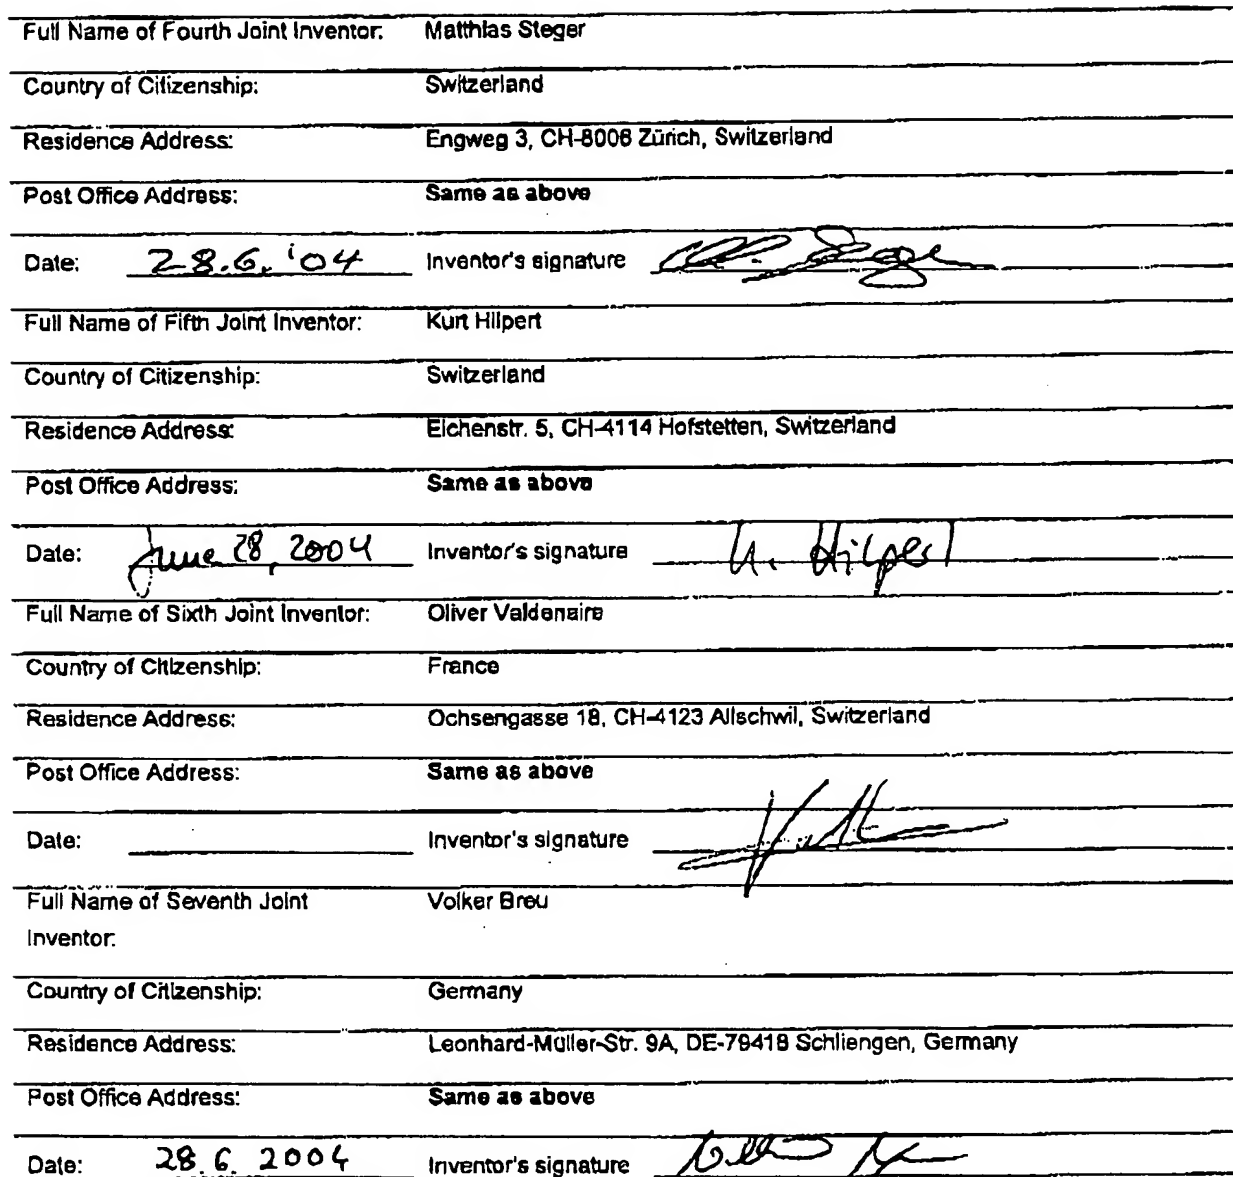 Full Name of Fourth Joint Inventor: Matthias Steger
Country of Citizenship: Switzerland
Residence Address: Engweg 3, CH-8006 Zürich, Switzerland
Post Office Address: Same as above
Date: 28.6.'04 Inventor's signature
Full Name of Fifth Joint Inventor: Kurt Hilpert
Country of Citizenship: Switzerland
Residence Address: Eichenstr. 5, CH-4114 Hofstetten, Switzerland
Post Office Address: Same as above
Date: June 28, 2004 Inventor's signature K. Hilpert
Full Name of Sixth Joint Inventor: Oliver Valdenaire
Country of Citizenship: France
Residence Address: Ochsengasse 18, CH-4123 Allschwil, Switzerland
Post Office Address: Same as above
Date: Inventor's signature
Full Name of Seventh Joint Volker Breu
Inventor:
Country of Citizenship: Germany
Residence Address: Leonhard-Müller-Str. 9A, DE-79418 Schliengen, Germany
Post Office Address: Same as above
Date: 28.6.2004 Inventor's signature